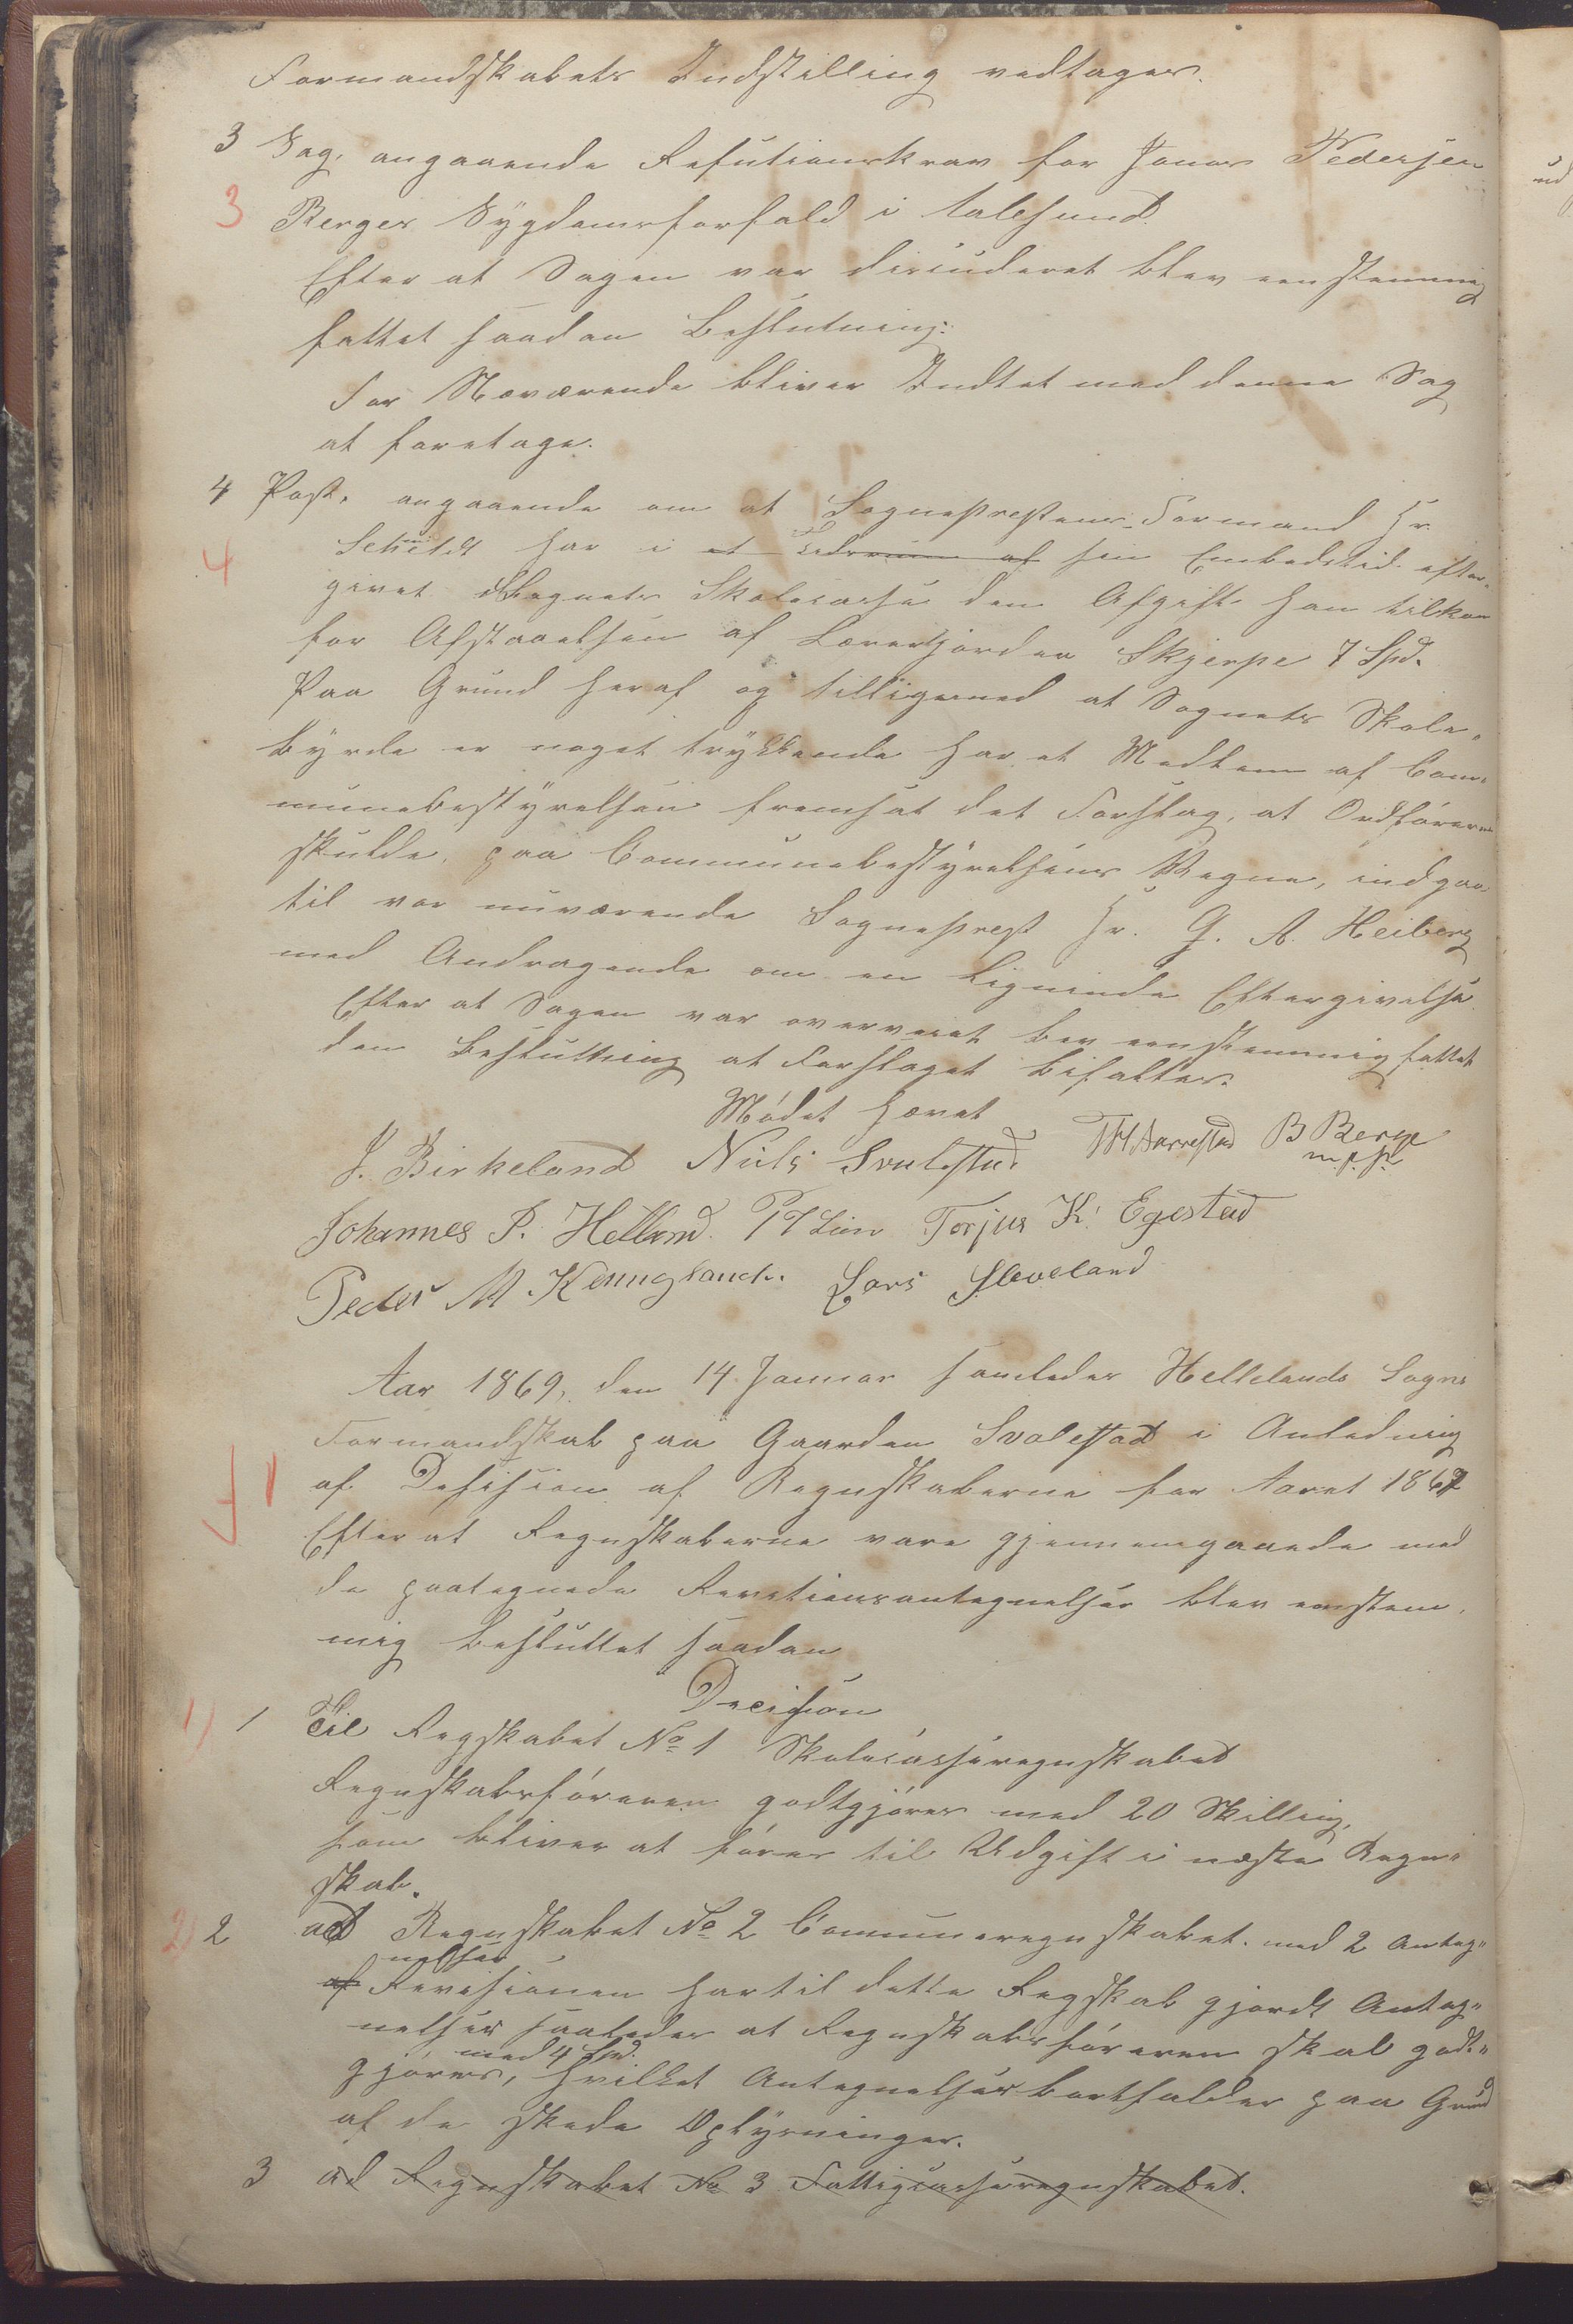 Formandskabets Indstilling vedtages.
3 Sag, angaaende Refutionskrav for Jonas Pedersen
3 Berges Sygdomsforfald i Aalesund
Efter at Sagen var discuderet blev eenstemmig
fattet saadan Beslutning:
For Nærværende bliver Indtet med denne Sag
at foretage.
4 Post, angaaende om at Sogneprestens Formand Hr.
4 Schmidt har i et af sin Embedstid efter-
givet Sognets Skolecasse den Afgift han tilkom
for Afstaaelsen af Lærerjorden Skjerpe 7 Spd.
Paa Grund heraf og tilligemed at Sognets Skole-
byrde er noget trykkende har et Medlem af Com-
munebestyrelsen fremsat det Forslag, at Ordføreren
skulde, paa Communebestyrelsens Vegne, indgaa
til vor nuværende Sogneprest Hr. G. A. Heiberg
med Andragende om en lignende Eftergivelse.
Efter at Sagen var overveiet bev eenstemmig fattet
den Beslutning at Forslaget bifaltes.
Mødet hævet
J. Birkeland Niels Svalestad. TH Aarrestad B Berge
m. f. P.
Johannes P. Helland. P T Lien Torjus K. Egestad
Peder M. Lars Sleveland
Aar 1869, den 14 Januar samledes Hellelands Sogns
Formandskab paa Gaarden Svalestad i Anledning
1 af Desision af Regnskaberne for Aaret 1867
Efter at Regnskaberne vare gjennemgaaede med
de paategnede Revetionsantegnelser blev eenstem-
mig besluttet saadan
Decision
1) 1 Til Regskabet No 1 Skolecasseregnskabet
Regnskabsføreren godtgjøres med 20 Skilling,
som bliver at føres til Udgift i næste Regn-
skab.
2) 2 ad Regnskabet No 2 Comuneregnskabet. med 2 Anteg-
nelser
af Revisionen har til dette Regskab gjordt Anteg-
nelser saaledes at Regnskabsføreren skal godt-
med 4 Spd.
gjøres, hvilket Antegnelser bortfalder paa Grund
af de skede Oplysninger.
3 ad Regnskabet No 3 Fattigcasseregnskabet.